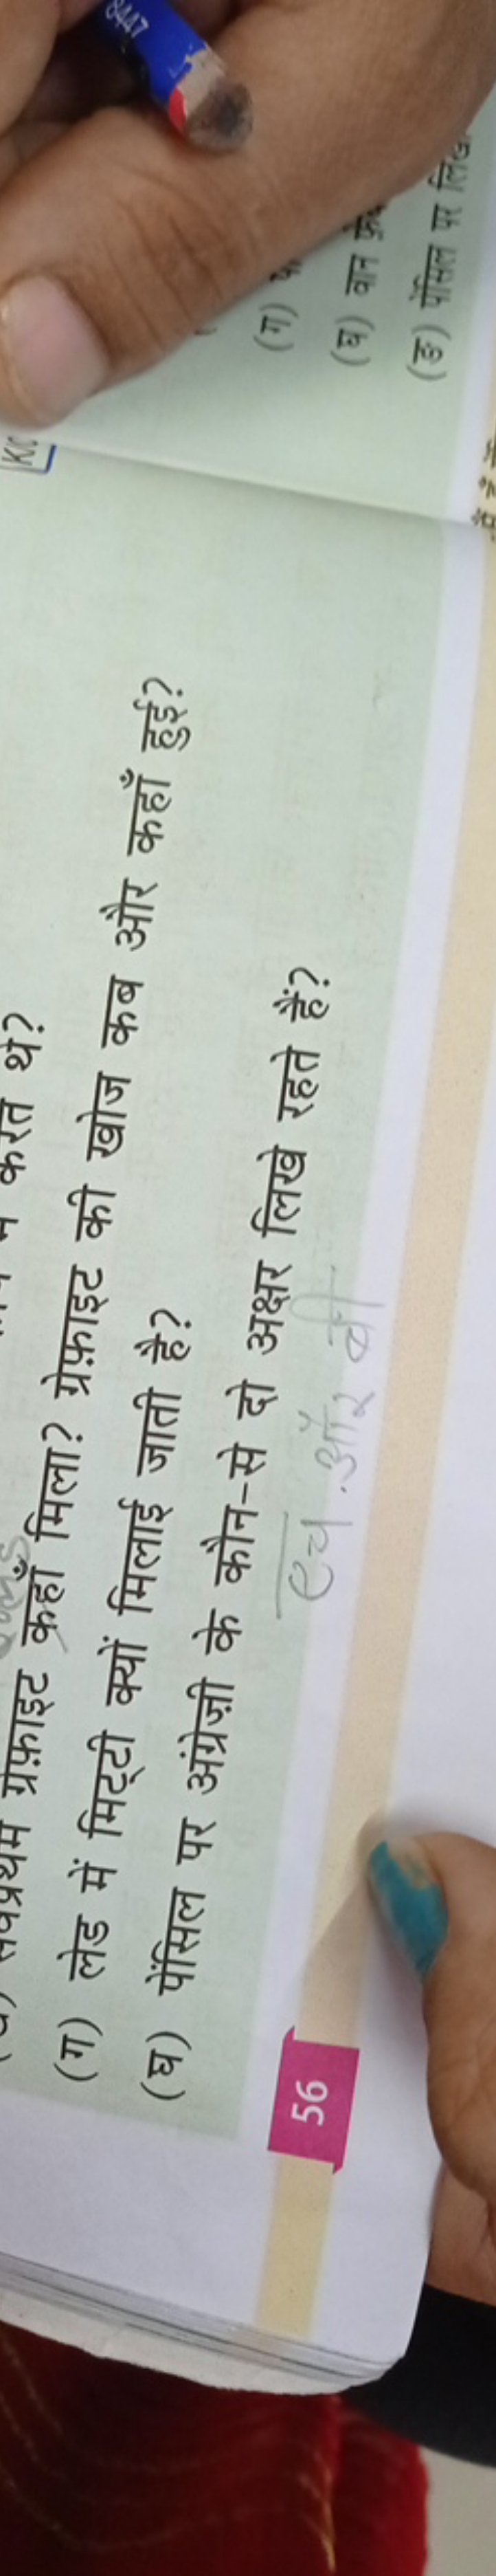 करते थे?
सर्वप्रथम ग्रेफ़ाइट कहाँ मिला? ग्रेफ़ाइट की खोज कब और कहाँ हुई?
(ग) लेड में मिट्टी क्यों मिलाई जाती है?
(घ) पेंसिल पर अंग्रेज़ी के कौन-से दो अक्षर लिखे रहते हैं?
एच और बी
56
(ग)
(घ) वान
(ङ) पेंसिल पर
8447